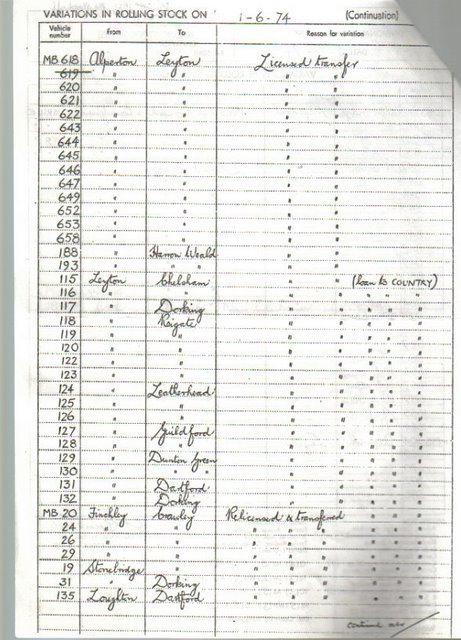 VARIATIONS IN ROLLING STOCK ON 1-6-74 (Continuation)
Vehicle number From To Reason for variation
MB 618 Alperton Leyton Licensed transfer
619 " " " "
620 " " " "
621 " " " "
622 " " " "
643 " " " "
644 " " " "
645 " " " "
646 " " " "
647 " " " "
649 " " " "
652 " " " "
653 " " " "
658 " " " "
188 " Harrow Weald " "
193 " " " " "
115 Leyton Chelsham " " (Loan to COUNTRY)
116 " " " " " " "
117 " Dorking " " " " "
118 " Reigate " " " " "
119 " " " " " " "
120 " " " " " " "
122 " " " " " " "
123 " " " " " " "
124 " Leatherhead " " " " "
125 " " " " " " "
126 " " " " " " "
127 " Guildford " " " " "
128 " " " " " " "
129 " Dunton Green " " " " "
130 " " " " " " " "
131 " Dartford " " " " "
132 " Dorking " " " " "
MB 20 Finchley Crawley Relicensed & transferred " " "
24 " " " " " " " "
26 " " " " " " " "
29 " " " " " " " "
19 Stonebridge " " " " " " "
31 " Dorking " " " " " "
135 Loughton Dartford " " " " " "